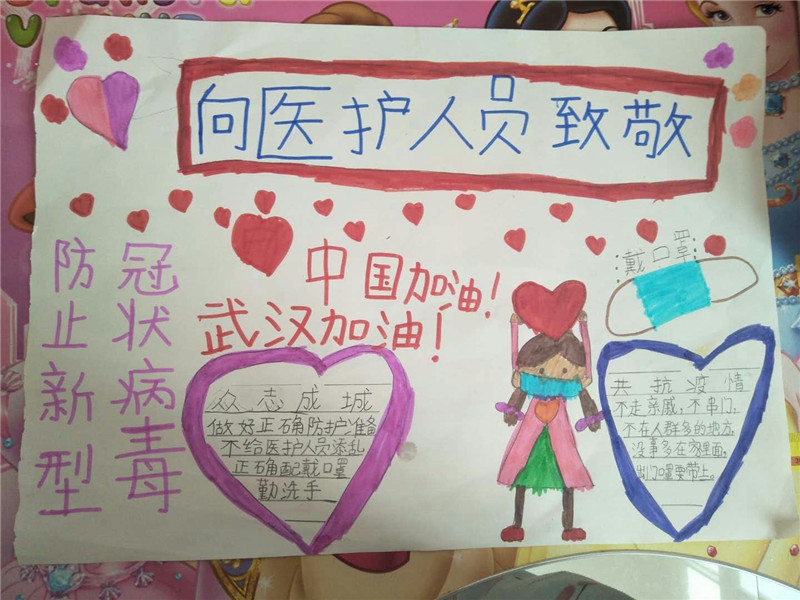 向医护人员致敬
防止新型
冠状病毒
中国加油!
武汉加油!
戴口罩
众志成城
做好正确防护准备
不给医护人员添乱
正确配戴口罩
勤洗手
共抗疫情
不走亲戚，不串门，
不在人群多的地方，
没事多在家里面，
出门口罩要带上。